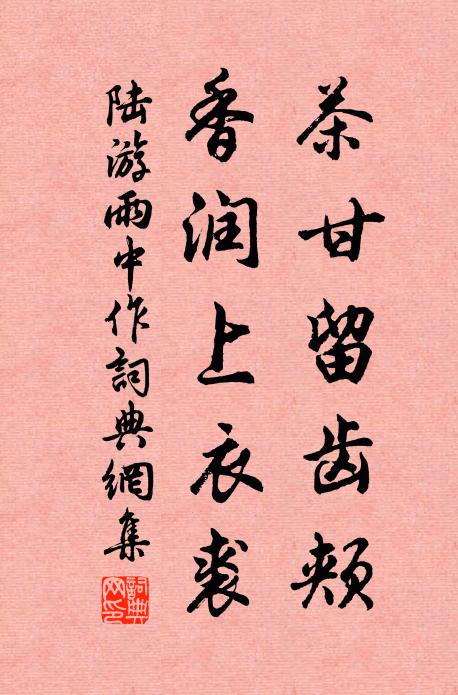 茶甘留齿颊
香润上衣裘
陆游雨中作詞典網集
詞典网印